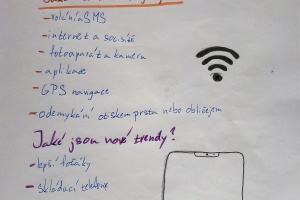 – volání a SMS
– internet a soc. sítě
– fotoaparát a kamera
– aplikace
– GPS navigace
– odemykání otiskem prstu nebo obličejem
Jaké jsou nové trendy?
– lepší foťáky
– skládací telefony